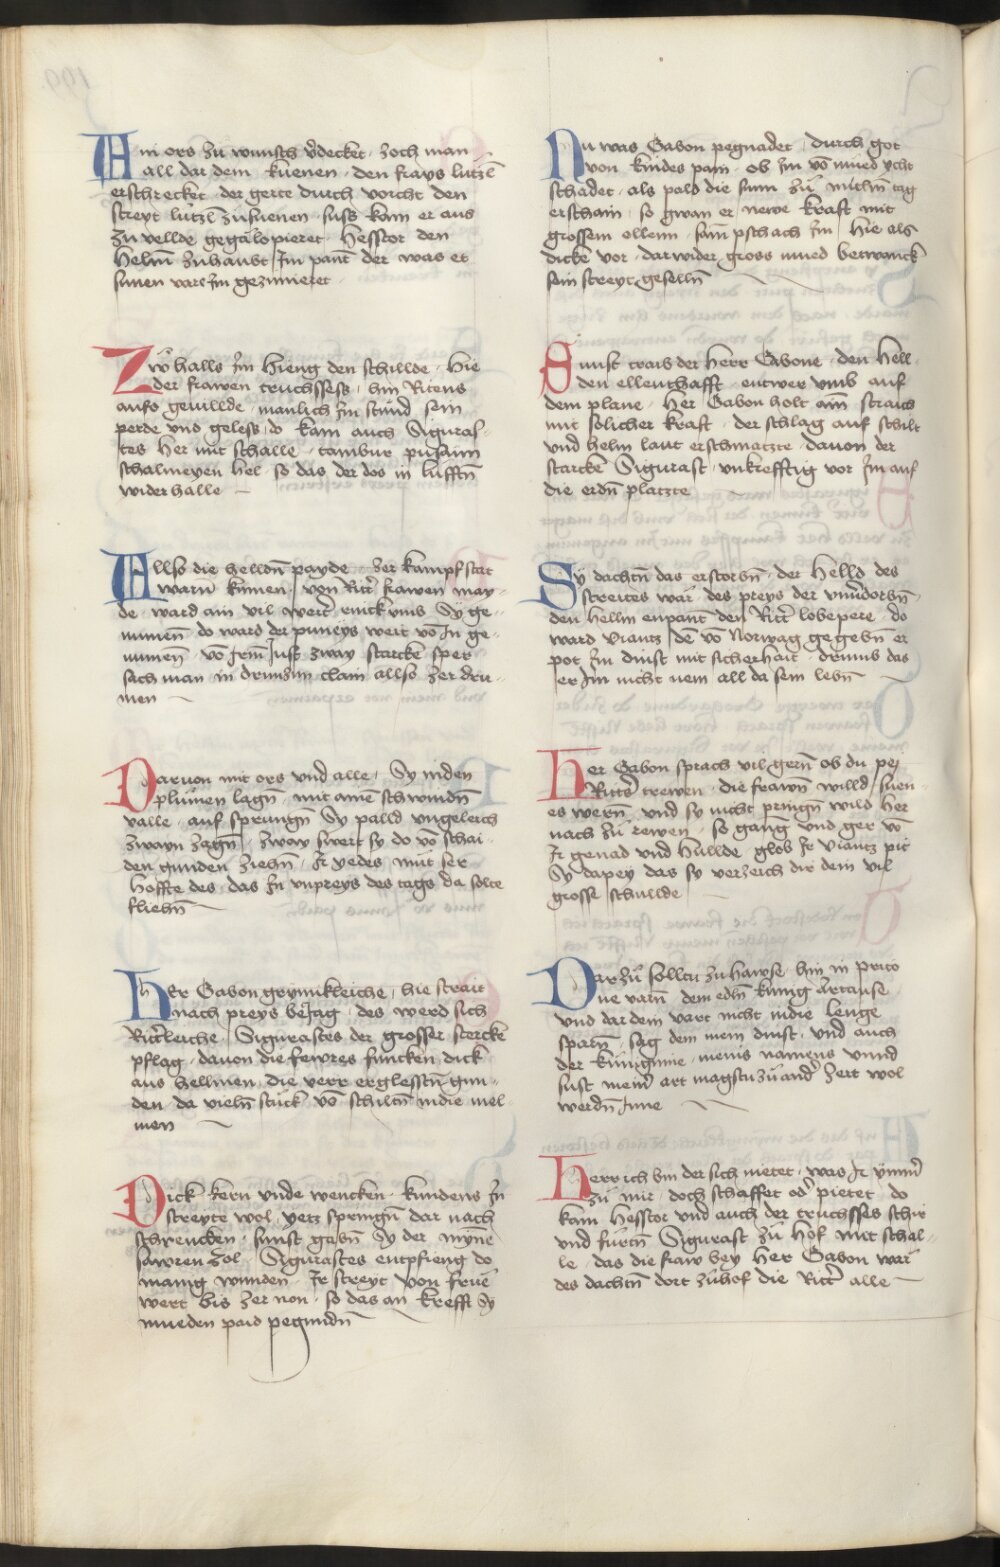 Ain ors zu wunsch v̄decket · zoch man
all dar dem kuenen · den frays lutzl̄
erschrecket · der gerte durch vorcht den
streyt lutzl̄ zusuenen · suss kam er aus
zu vellde gegalopieret · Hesstor den
Helm̄ zuhaubt Im pant der was et
gezimieret
Zwo halls Im hieng den schillde · Hie
der frawen truchsses · hin Ritens
aufs gevillde · manlich Im stund sein
perde und geless do kam auch Siguras-
tes Her mit schalle · tambur pusaun
schalmeyen hel · so das der dos in lufftn̄
wider halle
Allso die helldn̄ payde · zer kampf stat
warn̄ kumen · von Ritt̄ frawen may-
de · ward ain vil wert umb Sy ge-
numen̄ do ward der puneys weit vō In ge-
numen̄ · vō Irm̄ Just zway starcke sper
sach man in drumzun clain allso zer dru-
men
Daruon mit ors und alle · Sy inden
plumen lagn̄ · mit ainē schwindn̄
valle · auf sprungn̄ Sy palld ungeleich
zwayn zagn̄ · zway swert sy do vō schai-
den gunden ziehn̄ · Ir yedes mit ser
hoffte des · das In unpreys des tags da solte
fliehn̄
Her Gabon grymikleiche · hie strait
nach preys beJag · des werd sich
Ritt̄leiche · Sigurastes der grosser stercke
pflag · dauon die fewres funcken dick
aus hellmen · die verr erglesstn̄ gun-
den · da vieln̄ stuck vō schiltn̄ indie mel-
men
Dick kern unde wencken · kundens In
streyte wol · yetz springn̄ dar nach
schrencken · sunst gabn̄ Sy der mynē
sawren zol · Sigurastes entpfieng do
manig wunden · Ir streyt von frue
wert bis zer non · so das an krefft Sy
mueden paid pegundn̄
Nu was Gabon pegnadet · durch got
von kindes pain · ob Im vō mued ycht
schadet · als pald die sun zu mittn̄ tag
erschain · so gwan er newe krafft mit
grossem ellenn · sam pschach Im · hie als
dicke vor · dar wider gross mued betwanck
sein streyt geselln̄
Sunst traib der Herr Gabone · den hell-
den ellenthafft · entwer umb auf
dem plane · Her Gabon holt ain̄ straich
mit solicher kraft · der schlag auf schilt
und helm laut erschmatzte · dauon der
starcke Sigurast · unkrefftig vor Im auf
die erdn̄ platzte
Sy dachtn̄ das erstorbn̄ · der Helld des
streites war · des preys der unuerdorbn̄
den hellm enpant den Ritt̄ lobepere · do
ward viantz dē vō Norwag gegebn̄ er
pot Im dinst mit sicherhait · drumb das
er Im nicht nem all da sein lebn̄
Her Gabon sprach vil gern̄ ob du pej
Ritt̄s trewen · die frawn̄ willd suen-
es wern̄ · und sy nicht pringn̄ wild her
nach zu rewen · so gang und ger vō
Ir genad und hullde · glob Ir viantz pit
Sy dapey das sy verzeich dir dein vil
grosse schullde
Dar zu solltu zu hawse · hin in prito
ne varn̄ dem edln̄ kunig Artause
und dar dem vart nicht indie lenge
sparn̄ · sag dem mein dinst · und auch
der kunginne · meins namens unnd
sust meinr̄ art magstu zu and̄ zeit wol
werdn̄ Inne
Herr ich bin der sich nietet · was Ir ymm̄
zu mir · doch schaffet od̄ pietet · do
kam Hesstor und auch der truchsses schir
und furtn̄ Sigurast zu hof mit schal-
le · das die fraw bey Her Gabon war
des dachtn̄ dort zuhof die Ritt̄ alle